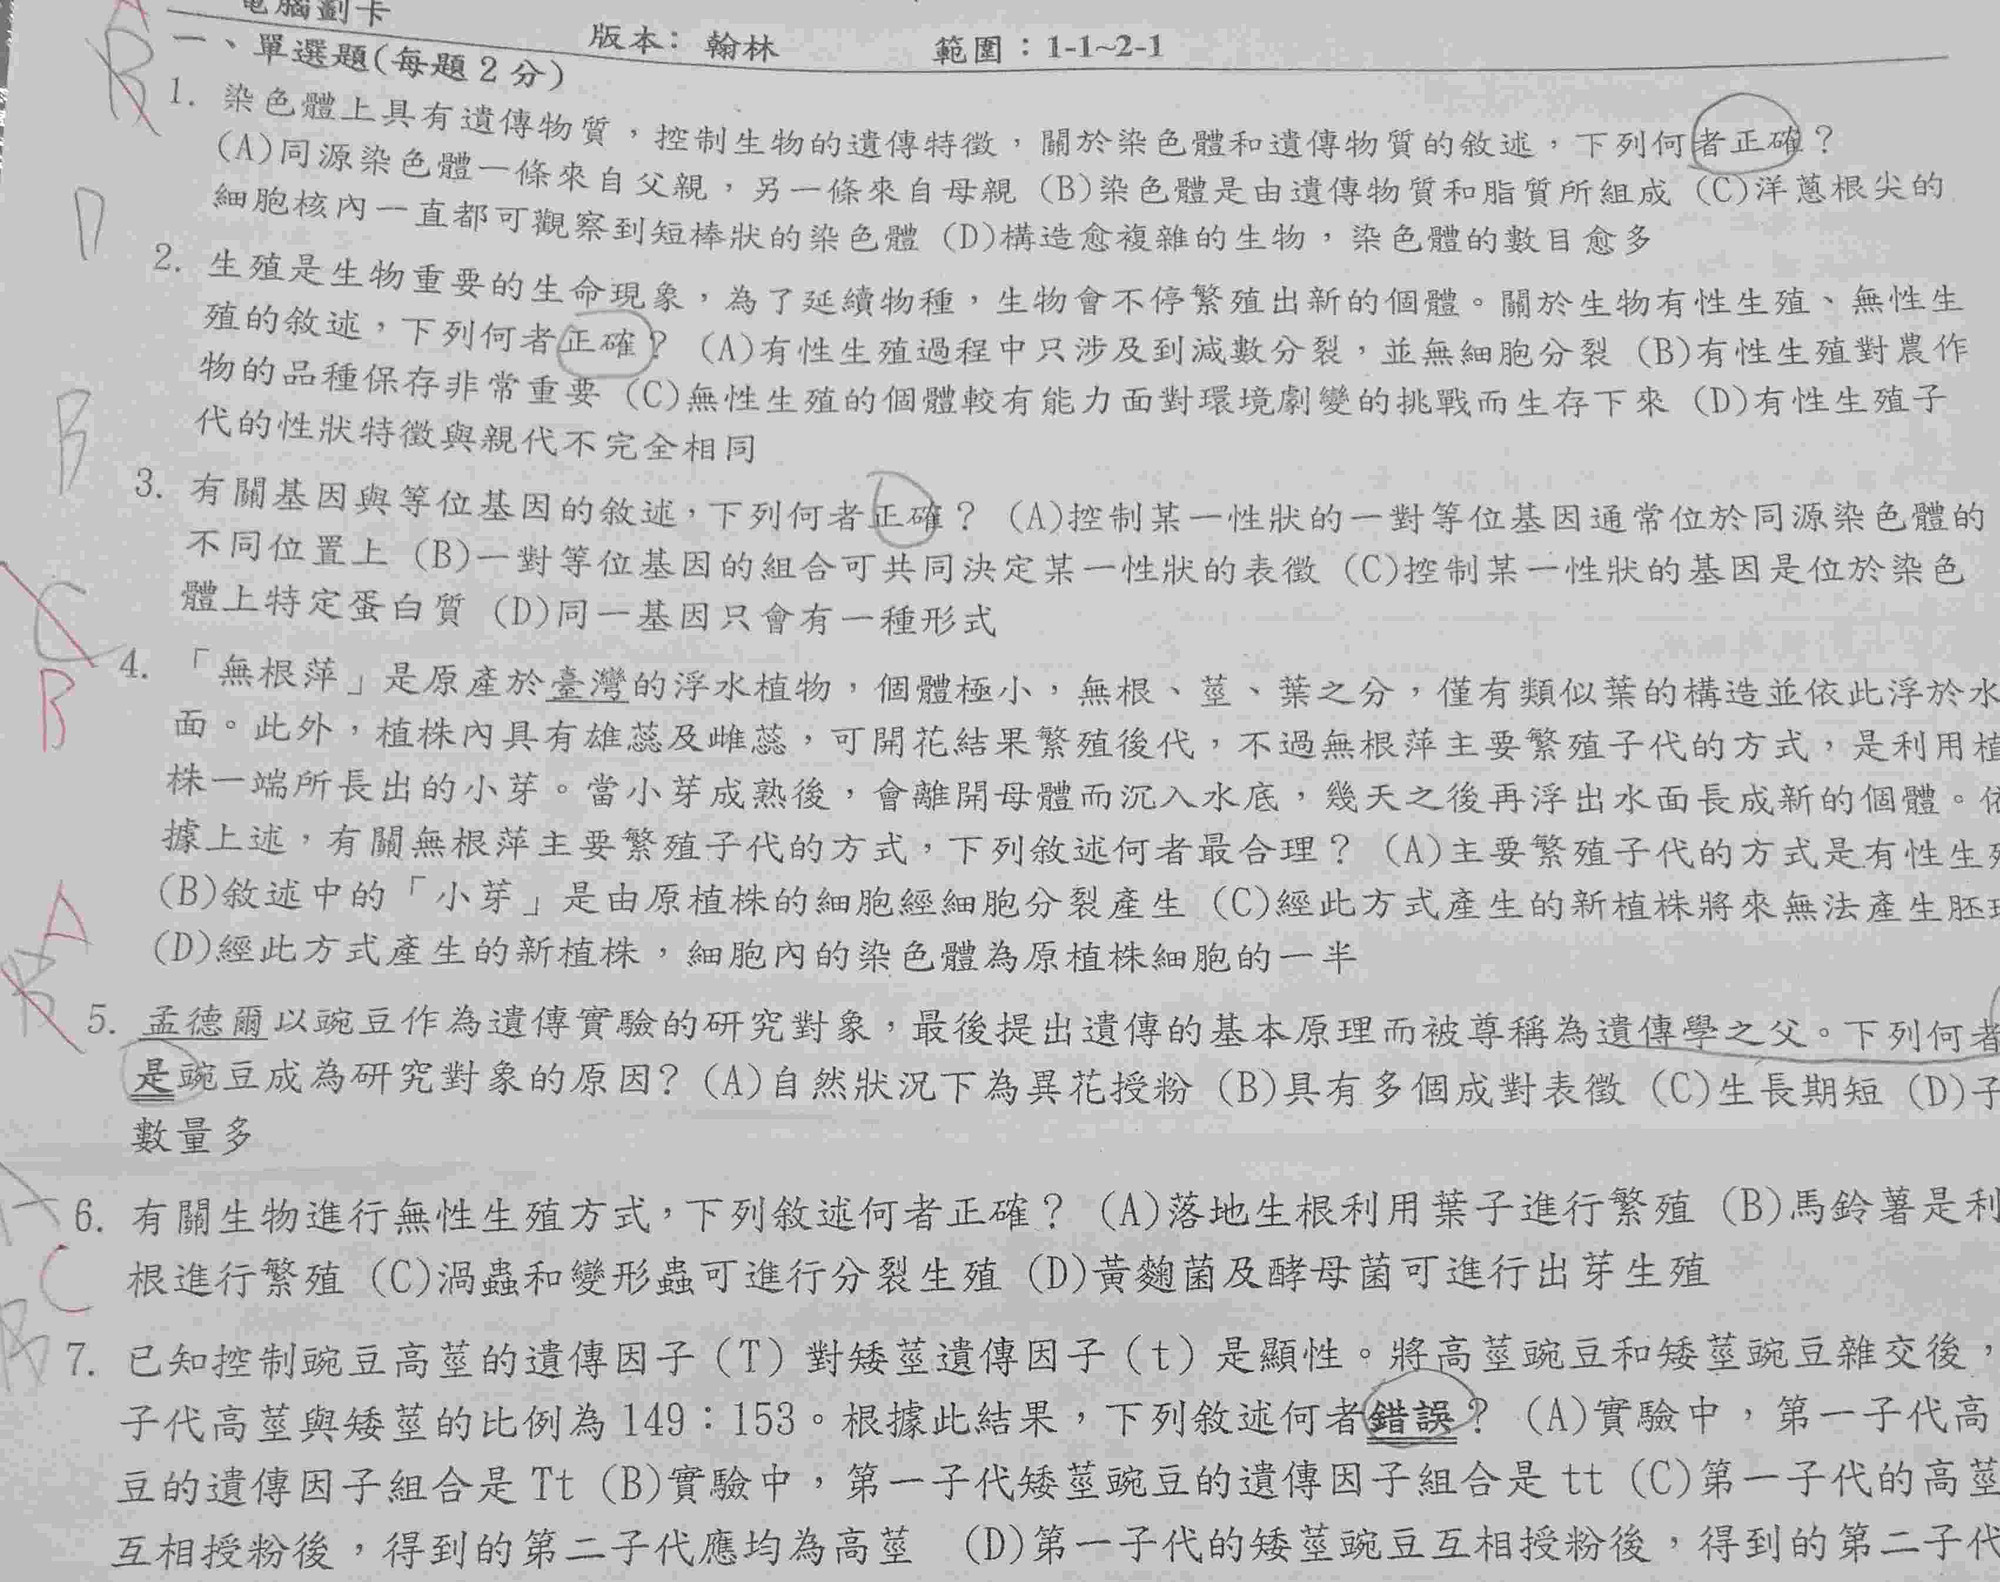 電腦劃卡
版本：翰林 範圍：1-1~2-1
一、單選題(每題2分)
A
B
1. 染色體上具有遺傳物質，控制生物的遺傳特徵，關於染色體和遺傳物質的敘述，下列何者正確？
(A)同源染色體一條來自父親，另一條來自母親 (B)染色體是由遺傳物質和脂質所組成 (C)洋蔥根尖的
細胞核內一直都可觀察到短棒狀的染色體 (D)構造愈複雜的生物，染色體的數目愈多
D
2. 生殖是生物重要的生命現象，為了延續物種，生物會不停繁殖出新的個體。關於生物有性生殖、無性生
殖的敘述，下列何者正確？ (A)有性生殖過程中只涉及到減數分裂，並無細胞分裂 (B)有性生殖對農作
物的品種保存非常重要 (C)無性生殖的個體較有能力面對環境劇變的挑戰而生存下來 (D)有性生殖子
代的性狀特徵與親代不完全相同
B
3. 有關基因與等位基因的敘述，下列何者正確？ (A)控制某一性狀的一對等位基因通常位於同源染色體的
不同位置上 (B)一對等位基因的組合可共同決定某一性狀的表徵 (C)控制某一性狀的基因是位於染色
體上特定蛋白質 (D)同一基因只會有一種形式
C
B
4. 「無根萍」是原產於臺灣的浮水植物，個體極小，無根、莖、葉之分，僅有類似葉的構造並依此浮於水
面。此外，植株內具有雄蕊及雌蕊，可開花結果繁殖後代，不過無根萍主要繁殖子代的方式，是利用植
株一端所長出的小芽。當小芽成熟後，會離開母體而沉入水底，幾天之後再浮出水面長成新的個體。依
據上述，有關無根萍主要繁殖子代的方式，下列敘述何者最合理？ (A)主要繁殖子代的方式是有性生
(B)敘述中的「小芽」是由原植株的細胞經細胞分裂產生 (C)經此方式產生的新植株將來無法產生胚
(D)經此方式產生的新植株，細胞內的染色體為原植株細胞的一半
A
B
5. 孟德爾以豌豆作為遺傳實驗的研究對象，最後提出遺傳的基本原理而被尊稱為遺傳學之父。下列何者
是豌豆成為研究對象的原因？(A)自然狀況下為異花授粉 (B)具有多個成對表徵 (C)生長期短 (D)子
數量多
6. 有關生物進行無性生殖方式，下列敘述何者正確？ (A)落地生根利用葉子進行繁殖 (B)馬鈴薯是利
根進行繁殖 (C)渦蟲和變形蟲可進行分裂生殖 (D)黃麴菌及酵母菌可進行出芽生殖
C
B
7. 已知控制豌豆高莖的遺傳因子（T）對矮莖遺傳因子（t）是顯性。將高莖豌豆和矮莖豌豆雜交後，
子代高莖與矮莖的比例為 149：153。根據此結果，下列敘述何者錯誤？ (A)實驗中，第一子代高
豆的遺傳因子組合是 Tt (B)實驗中，第一子代矮莖豌豆的遺傳因子組合是 tt (C)第一子代的高莖
互相授粉後，得到的第二子代應均為高莖 (D)第一子代的矮莖豌豆互相授粉後，得到的第二子代